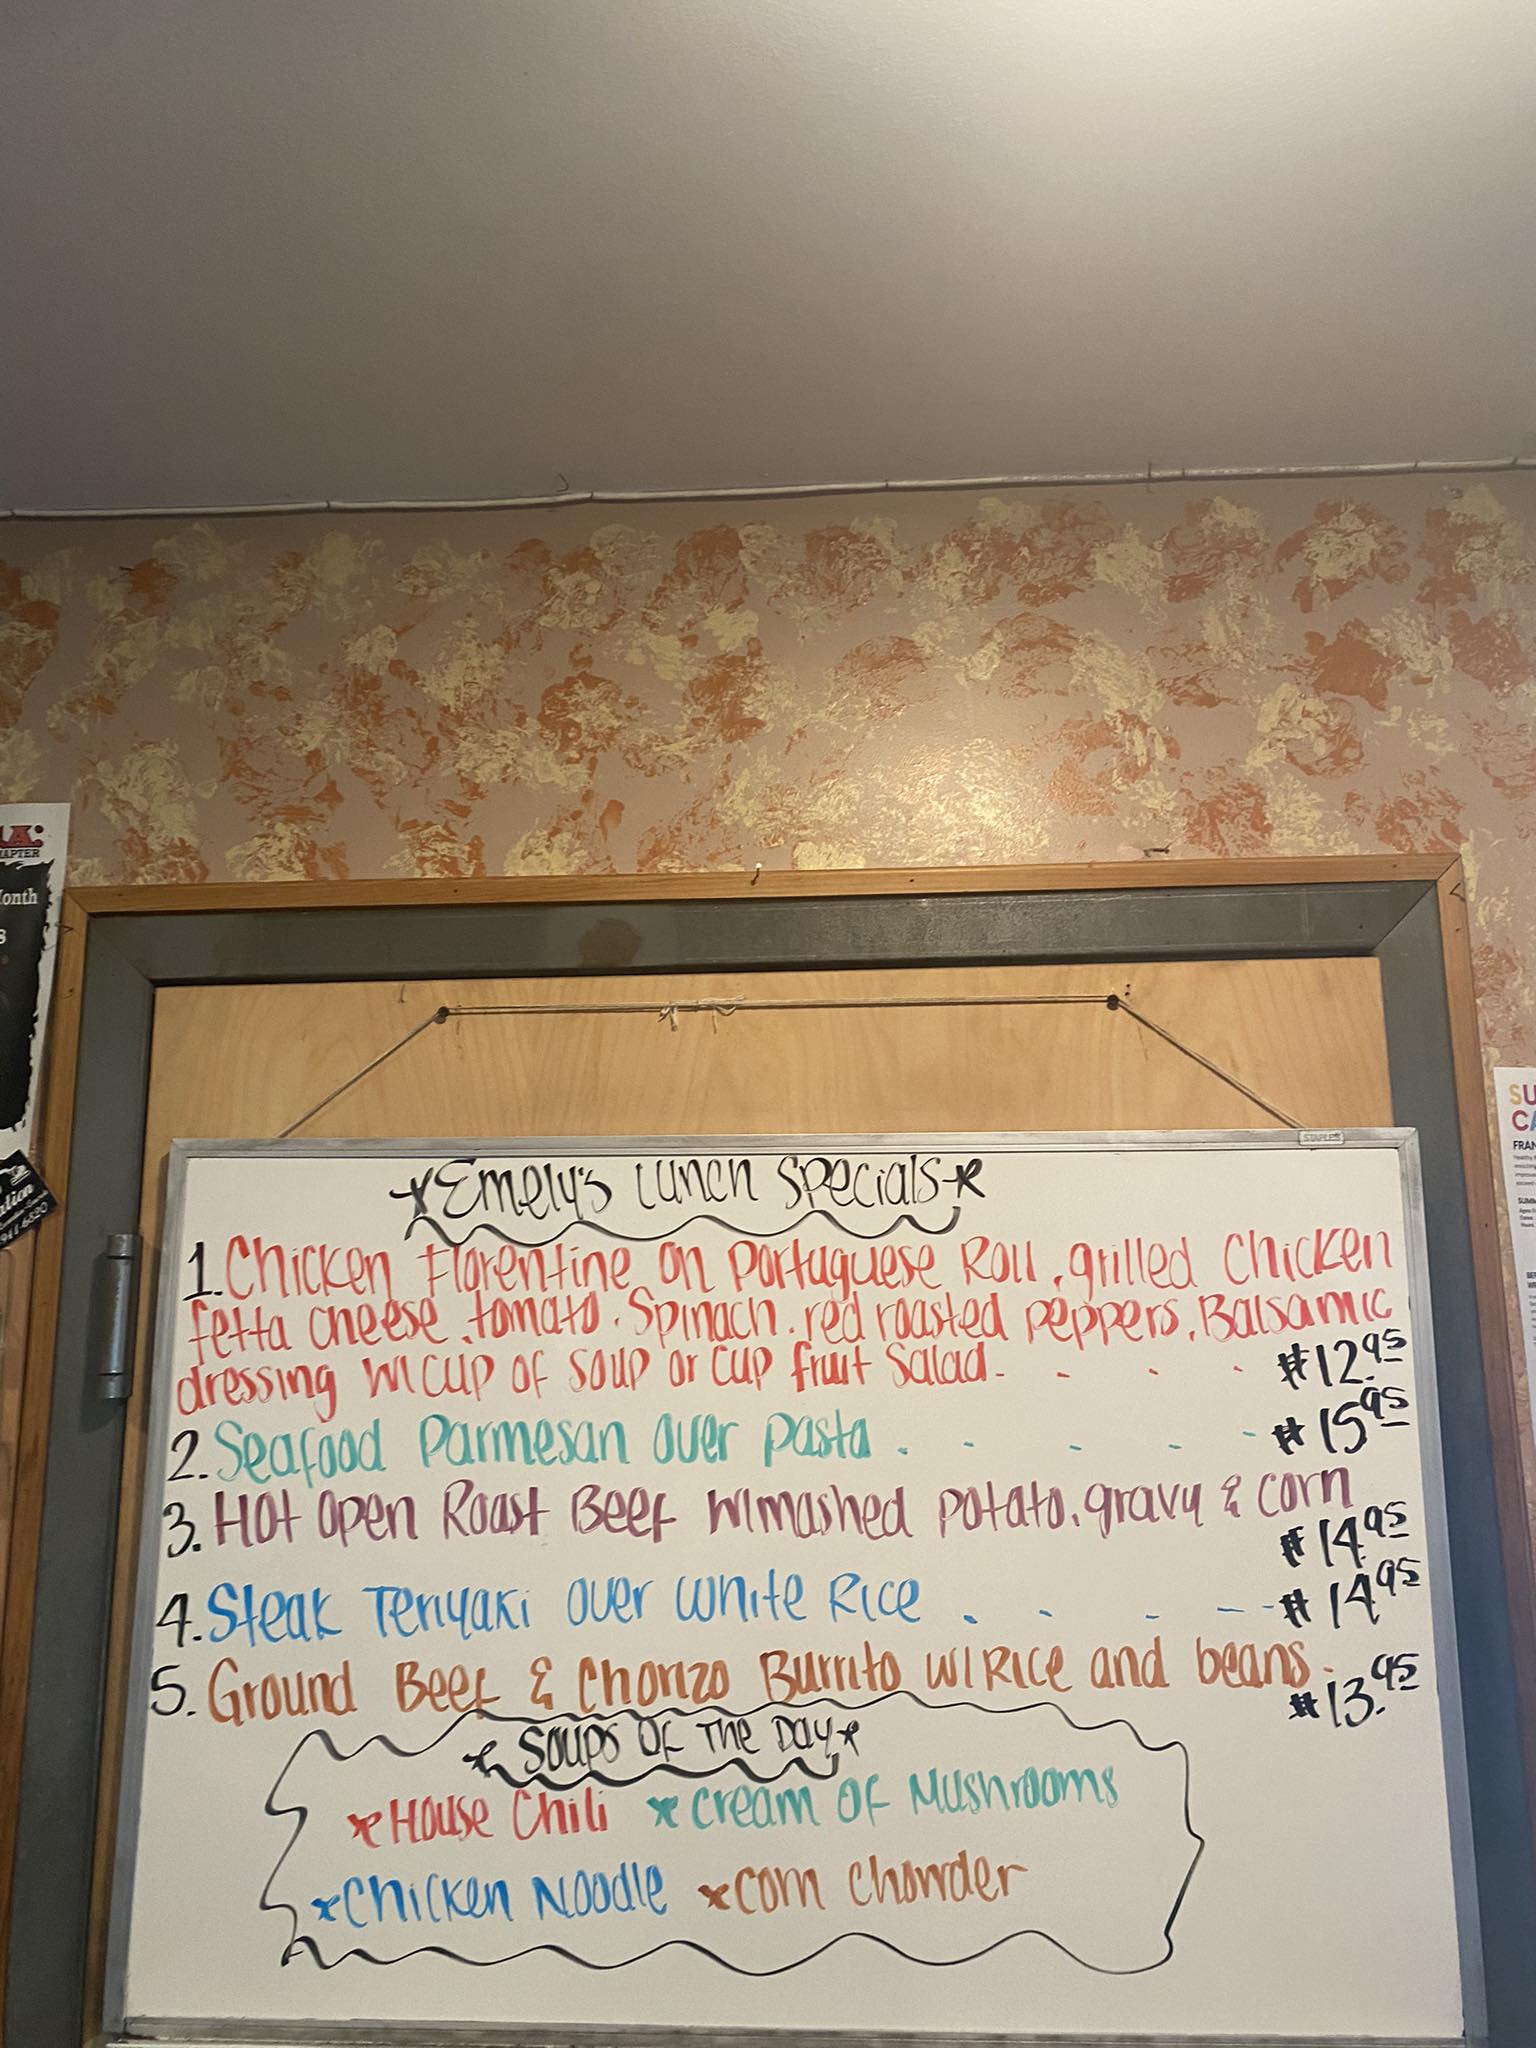 A:
HAPTER
Month
STAPLES
Emely's Lunch Specials
1. Chicken Florentine on Portuguese Roll, grilled Chicken
fetta cheese, tomato, Spinach, red roasted peppers, Balsamic
dressing w/cup of soup or cup fruit Salad. . . . $12.95
2. Seafood Parmesan over pasta . . . . . $15.95
3. Hot open Roast Beef w/mashed potato, gravy & corn
$14.95
4. Steak Teriyaki over White Rice . . . - - $14.95
5. Ground Beef & Chorizo Burrito w/Rice and beans.
$13.95
Soups Of The Day
House Chili Cream Of Mushrooms
Chicken Noodle Corn Chowder
SU
CA
FRAN